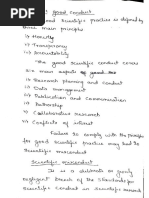 Good conduct
Good scientific practice is defined by
three main principles
i) Honesty
ii) Transparency
iii) Accountability
The good scientific conduct covers
main aspects of good
i) Research planning and conduct
ii) Data management
iii) Publication and communication
iv) Authorship
Collaborative research
v) Conflicts of interest
Failure to comply with the principles
for good scientific practice may lead to
Scientific misconduct.
Scientific misconduct
It is a
negligent breach of the standards for
Scientific conduct in scientific research